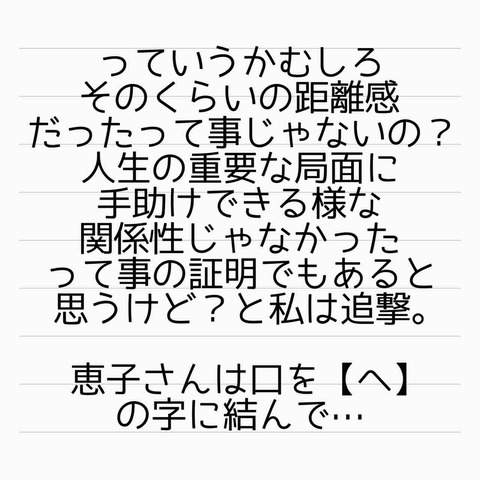 っていうかむしろ
そのくらいの距離感
だったって事じゃないの？
人生の重要な局面に
手助けできる様な
関係性じゃなかった
って事の証明でもあると
思うけど？と私は追撃。
恵子さんは口を【へ】
の字に結んで…